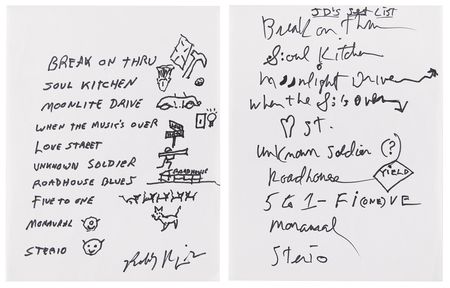 BREAK ON THRU
SOUL KITCHEN
MOONLITE DRIVE
WHEN THE MUSIC'S OVER
LOVE STREET
UNKNOWN SOLDIER
ROADHOUSE
ROADHOUSE BLUES
FIVE TO ONE
MORAURAL
STERIO
JD's Set LIST
Break on Thru
Soul Kitchen
Moonlight Drive
When the
Over
ST.
Unknown Soldier (?)
Roadhouse
YIELD
5 to 1 - FI(ONE)VE
moraural
Sterio